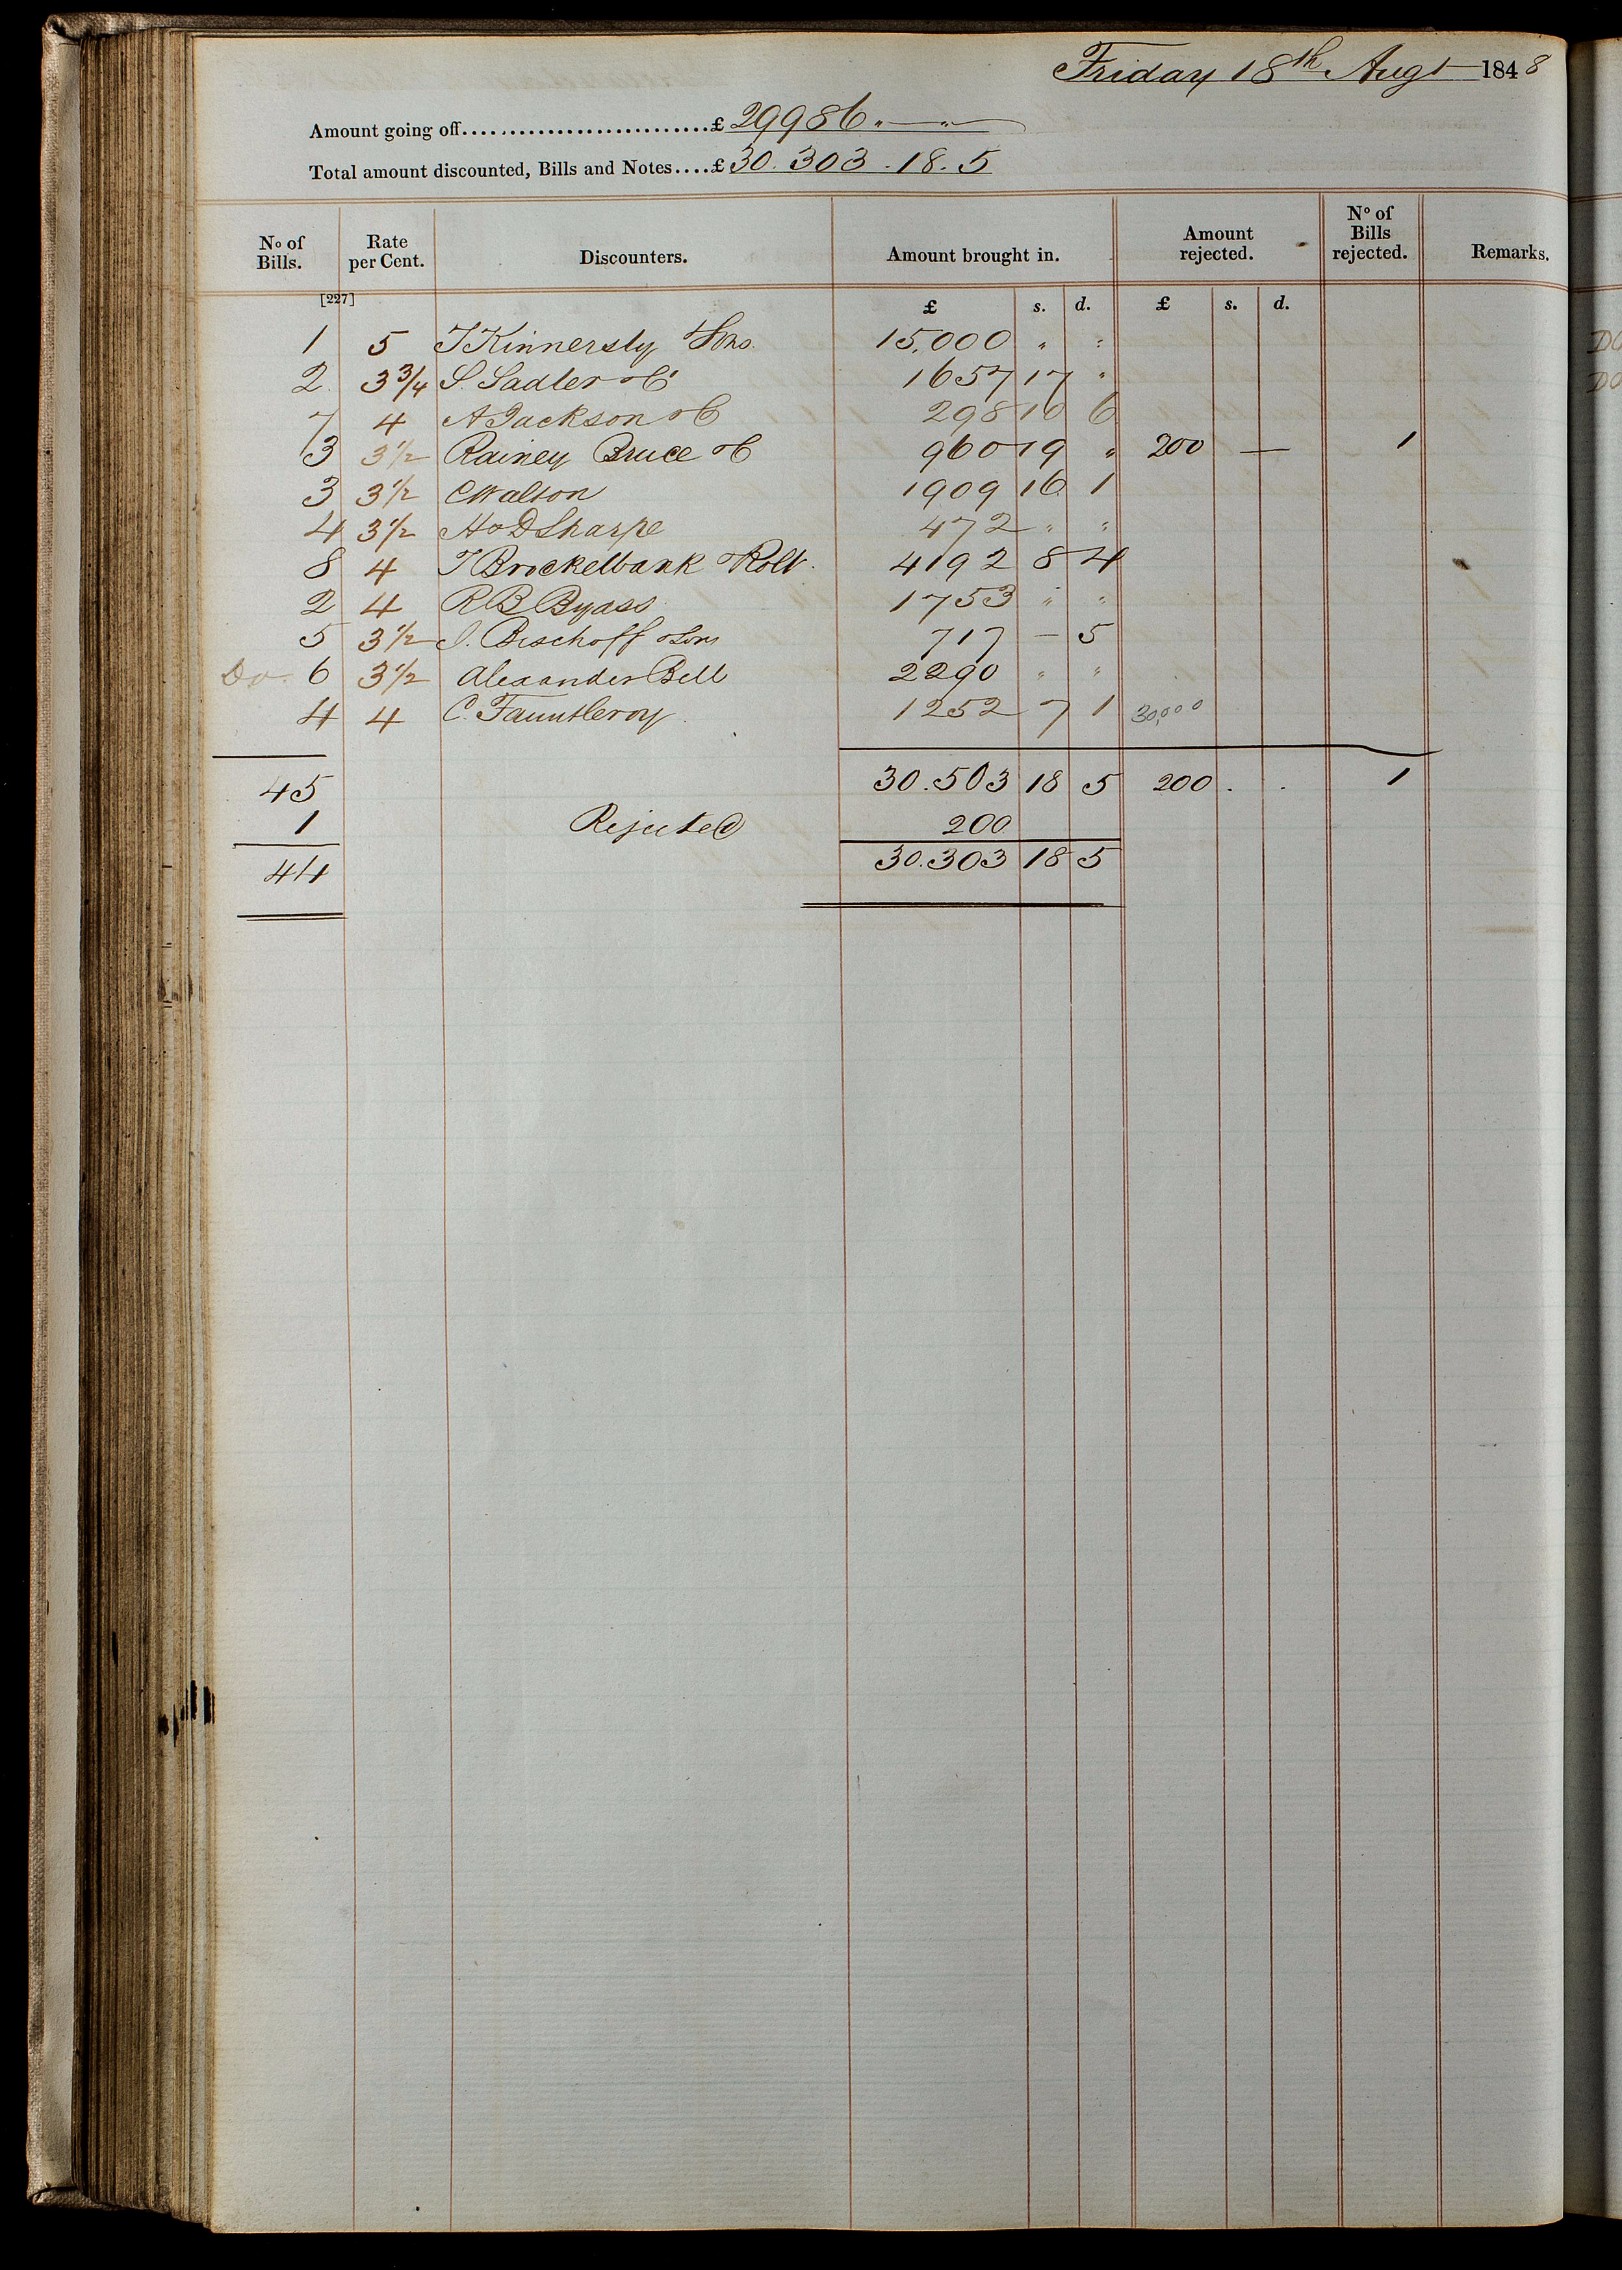 Friday 18th Augt 1848
Amount going off..........................£ 29986 " — "
Total amount discounted, Bills and Notes....£ 30.303.18.5
No of Bills. Rate per Cent. Discounters. Amount brought in. Amount rejected. No of Bills rejected. Remarks.
[227] £ s. d. £ s. d.
1 5 T Kinnersly & Sons 15,000 " "
2 3 3/4 S. Sadler & Co 1657 17 "
7 4 A Jackson & C 298 10 6
3 3 1/2 Rainey Bruce & C 960 19 " 200 — 1
3 3 1/2 C Walton 1909 16 1
4 3 1/2 H & D Sharpe 472 " "
8 4 T Brockelbank & Rolt 4192 8 4
2 4 R B Byass 1753 " "
5 3 1/2 J. Bischoff & Sons 717 — 5
Do. 6 3 1/2 Alexander Bell 2290 " "
4 4 C. Fauntleroy 1252 7 1 30,000
45 30.503 18 5 200 . . 1
1 Rejected 200
44 30.303 18 5
Do
Do